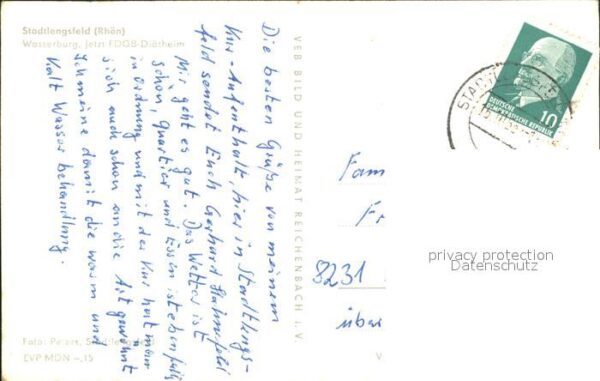 Stadtlengsfeld (Rhön)
Wasserburg, jetzt FDGB-Diätheim
Die besten Grüße von meinem
Kur-Aufenthalt, hier in Stadtlengs-
feld sendet Euch Gerhard
Mir geht es gut. Das Wetter ist
schön, Quartier und Essen ist ebenfalls
in Ordnung und mit der Kur hat man
sich auch schon an die Art gewöhnt
Ich meine damit die warm und
kalt Wasser behandlung.
Foto: Peters, Stadtlengsfeld
EVP MDN -,15
VEB BILD UND HEIMAT REICHENBACH i. V.
DEUTSCHE
DEMOKRATISCHE REPUBLIK
10
STADTL
Fam
Fr
8231
über
V
privacy protection
Datenschutz